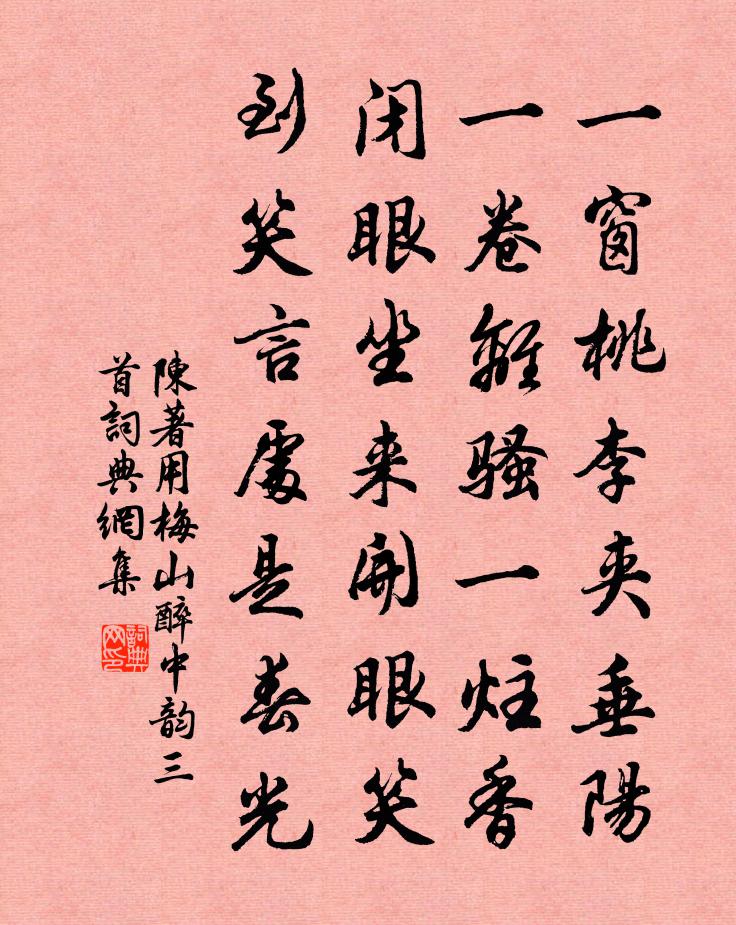 一窗桃李夹垂陽
一卷離骚一炷香
闭眼坐来開眼笑
到笑言處是春光
陳著用梅山醉中韵三
首詞典網集
詞典网印